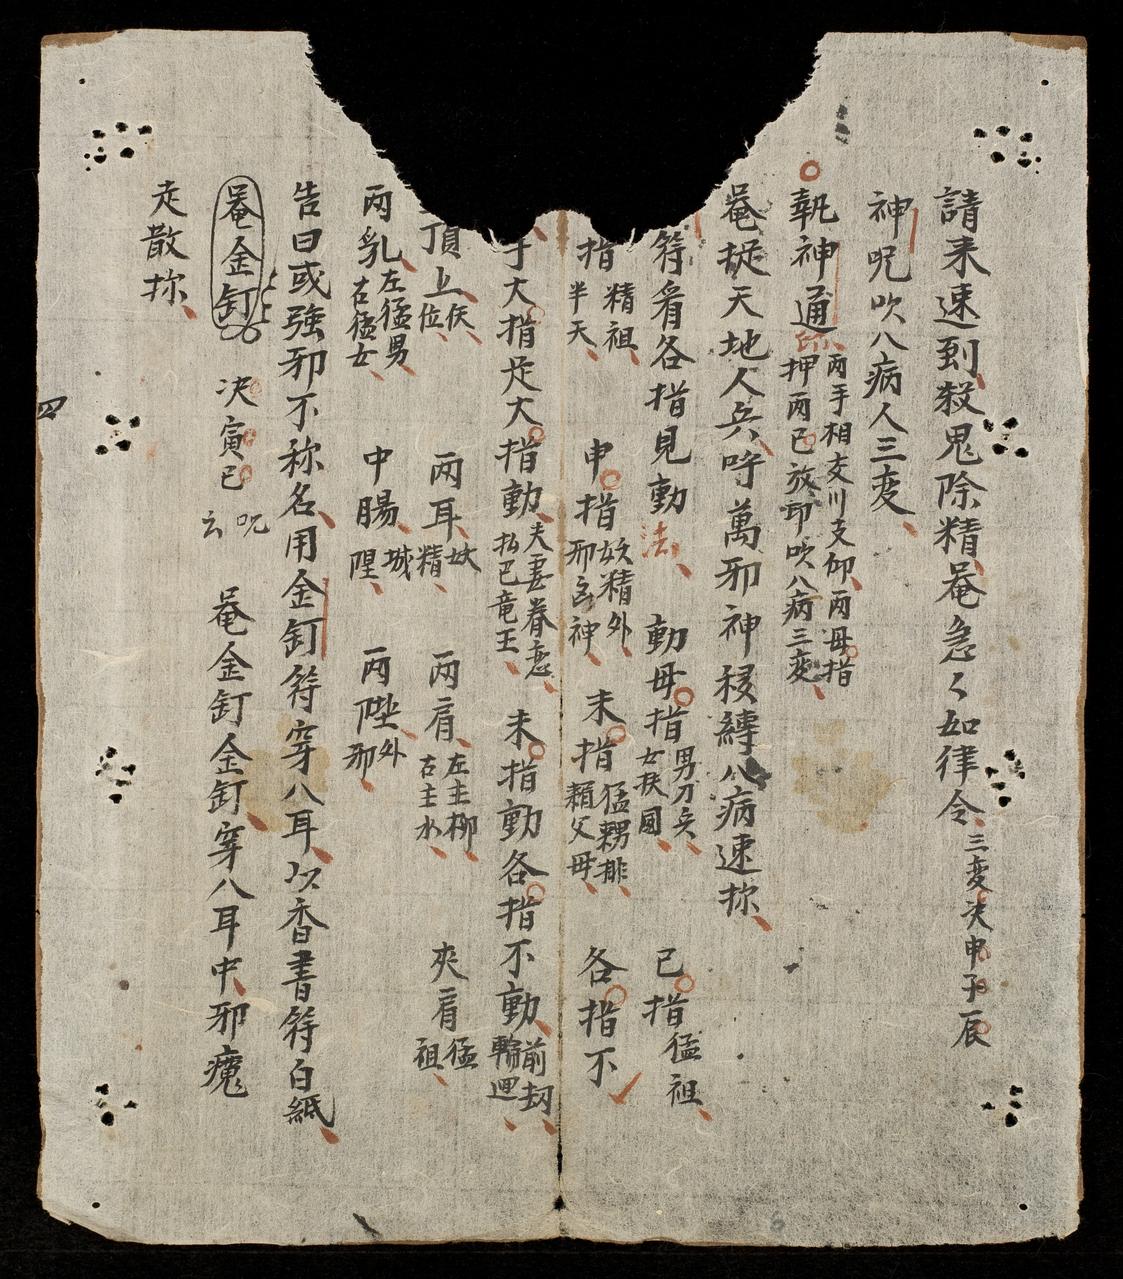 請来速到殺鬼除精菴急々如律令三变决申子辰
神呪吹八病人三变
執神通
兩手相交川支仰兩母指
押兩已放卯吹八病三变
菴捉天地人兵呼萬邪神移縛八病速
符看各指見動法 動母指
男刀兵
女扶
已指猛祖
指
精祖
半天
申指
妖精外
邪神
未指
猛
父母
各指不
大指足大指動
夫妻眷
巴竜王
未指動各指不動
前劫
輪迴
頂上
位
兩耳
妖
精
兩肩
左主柳
右主水
夾肩
猛
祖
兩乳
左猛男
右猛女
中腸
城
隍
兩陛
外
邪
告曰或強邪不称名用金釘符穿八耳以香書符白紙
菴金釘 决寅巳
呪
云
菴金釘金釘穿八耳中邪魔
走散
四